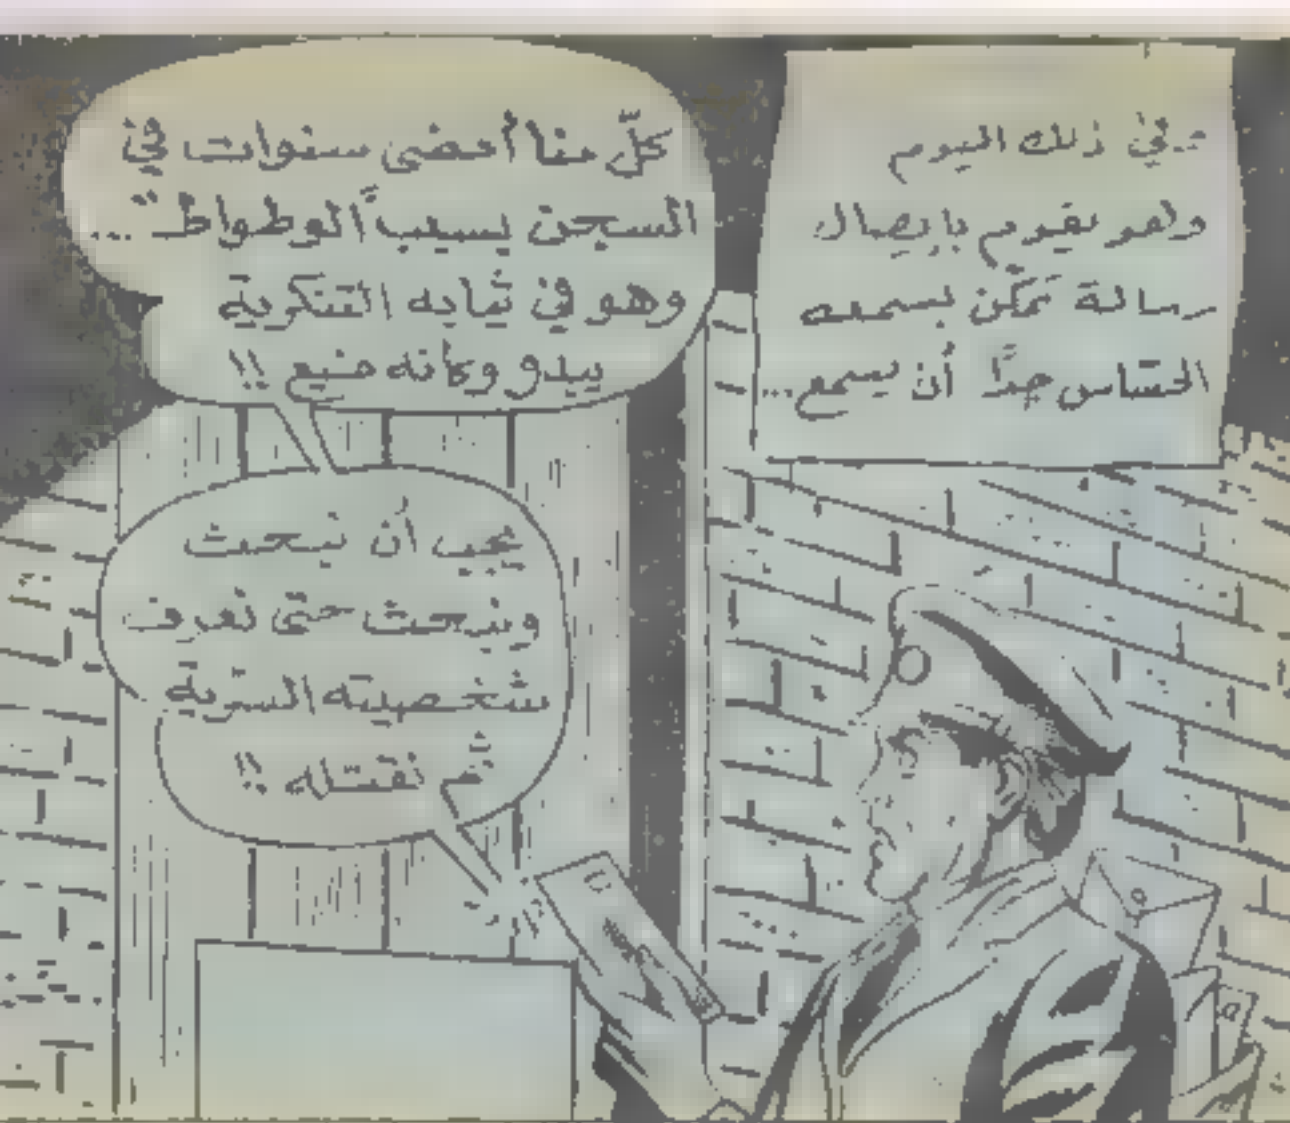 ..في ذلك اليوم
وهو يقوم بإيصال
رسالة تمكّن بسمعه
الحسّاس جدًّا أن يسمع...
كلّ منا أمضى سنوات في
السجن بسبب "الوطواط"...
وهو في ثيابه التنكرية
يبدو وكأنه منيع !!
يجب أن نبحث
ونبحث حتى نعرف
شخصيته السرّية
ثم نقتله !!